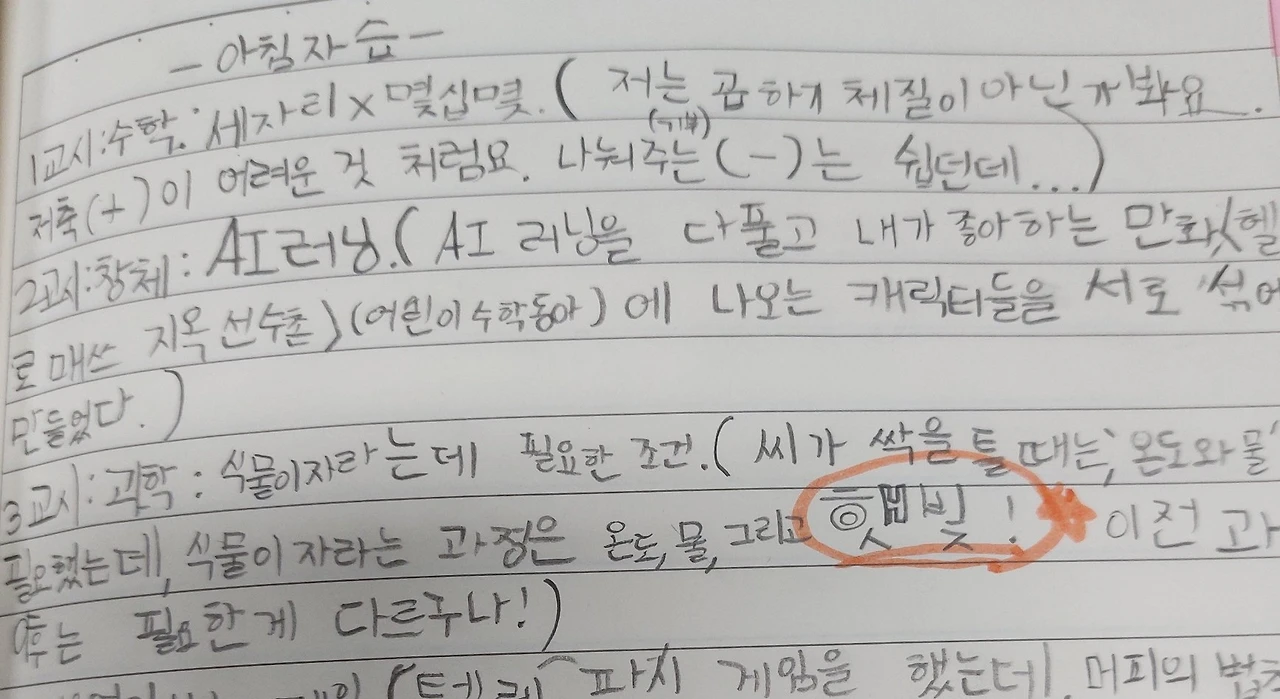 -아침자습-
1교시:수학: 세자리×몇십몇.( 저는 곱하기 체질이 아닌가봐요.
저축(+)이 어려운 것 처럼요. 나눠주는(기부)(-)는 쉽던데...)
2교시:창체: AI러닝.( AI 러닝을 다풀고 내가 좋아하는 만화(헬
로 매쓰 지옥 선수촌)(어린이수학동아)에 나오는 캐릭터들을 서로 섞어
만들었다.)
3교시:과학: 식물이자라는데 필요한 조건.( 씨가 싹을 틀 때는, 온도와 물'
필요했는데, 식물이 자라는 과정은 온도, 물, 그리고 햇빛! 이전 과
후는 필요한게 다르구나!)
파시 게임을 했는데, 머피의